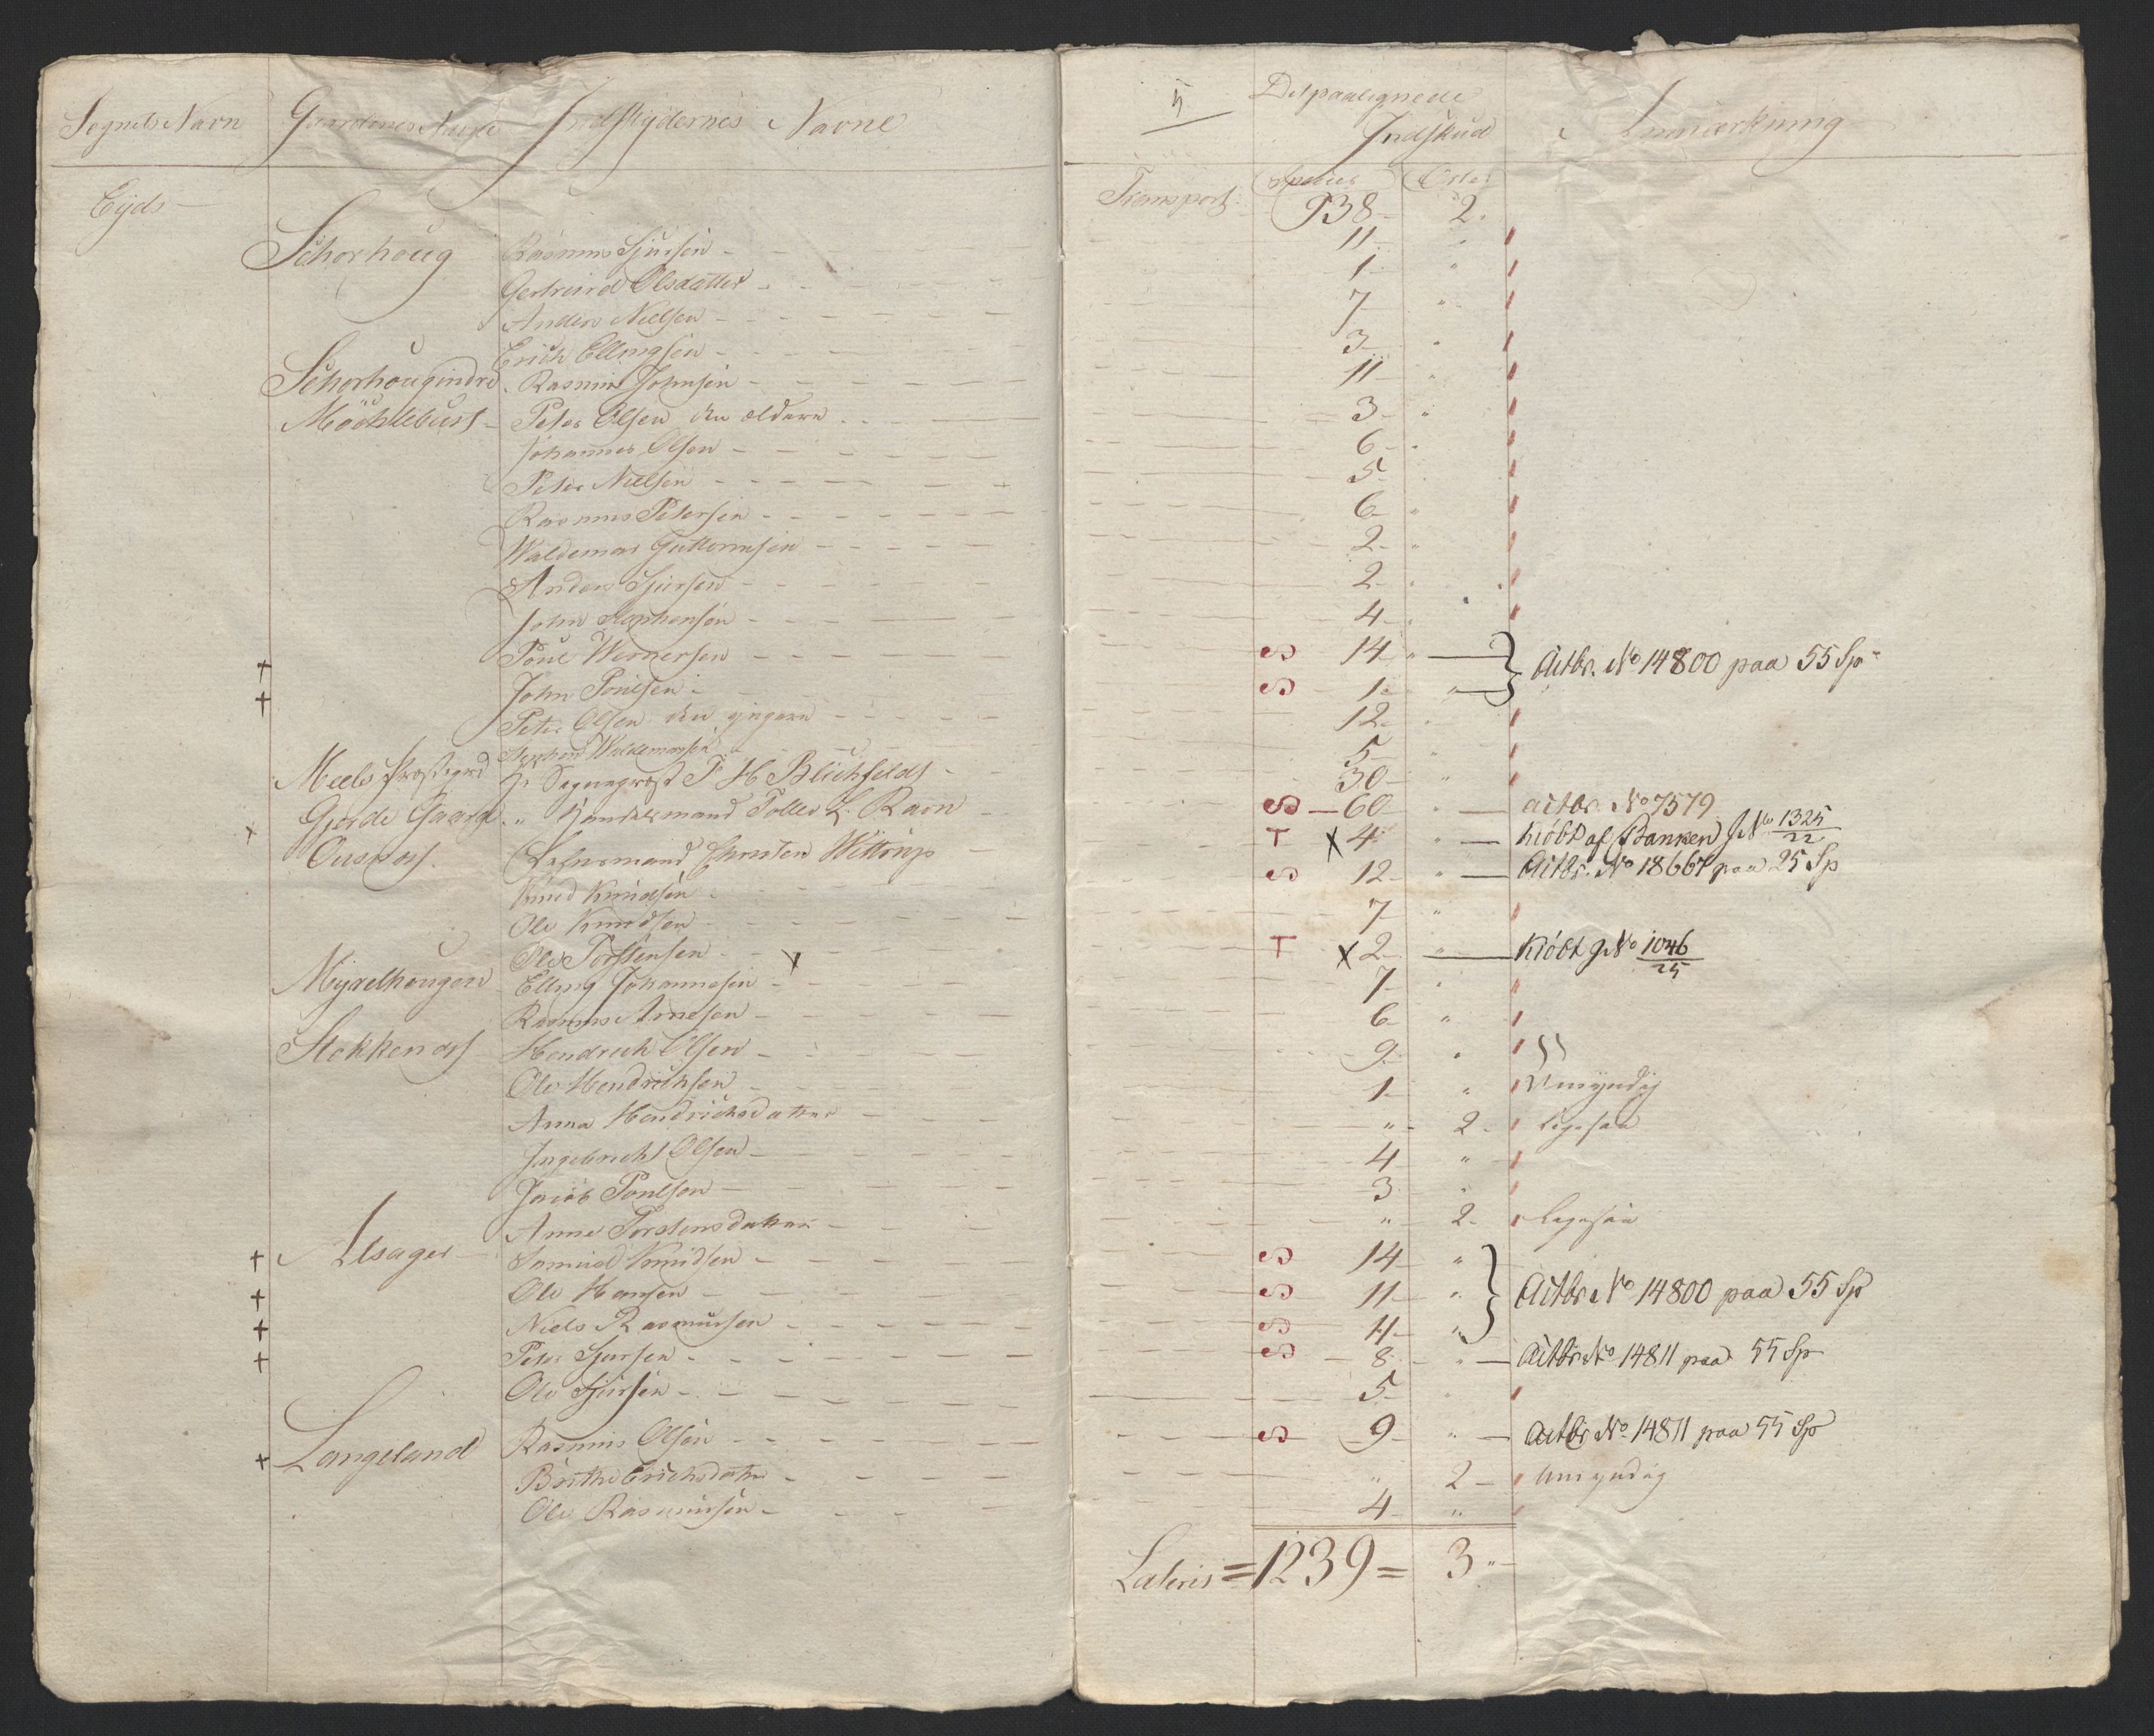 Sognets Navn Gaardenes Navne Indskydernes Navne
5 Det paalignede Indskud Anmærkning
Species Orter
Eijds — Transport: 938 - 2.
Schorhoug Rasmus Sjursen - 11 - "
Gertruud Olsdatter - 1 - "
Anders Nielsen - 7 "
Erich Ellingsen - 3 - "
Schorhougindre Rasmus Johnsen - 11 - "
Möchlebust - Peter Olsen den ældere - 3 - "
Johannes Olsen - 6 - "
Peter Nielsen - 5
Rasmus Petersen - 6 - "
Waldemar Guttormsen - 2 - "
Anders Sjursen - 2 - "
John Stephensen - 4 - "
+ Poul Wernersen - S 14 " — } Actbr. No 14800 paa 55 Sp
+ John Poulsen - S 1 - " —
Peter Olsen den yngere - 12 -
Stephen Waldemarsen - 5 - "
Meels Præstegrd Hr Sogneprest P H Blichfeldt - 30 - "
Gjerde Gaard " Handelsmand Toller L. Ravn - S — 60 - " — actbr. No 7579
x Ousdas. Lehnsmand Christen Wittrup - T x 4 " — kiöbt af Banken J No 1325/22
Knud Knudsen - S 12 - " — Actbr. No 18667 paa 25 Sp
Ole Knudsen - 7 - "
Ole Torstensen - x T x 2 - " — Kiöbt J No 1046/25
Myrelhougen Elling Johannesen - 7 - "
Rasmus Arnesen - 6 - "
Stokkendss Hendrich Olsen - 9 - "
Ole Hendrichsen - 1 - " Umyndig
Anna Hendrichsdatter - " - 2 - Ligesaa
Ingebricht Olsen - 4 - "
Jacob Poulsen - 3 "
Anne Torstensdatter - " - 2 - Ligesaa
+ Alsager Samuel Knudsen - S 14 - " } Actbr No 14800 paa 55 Sp
+ Ole Hansen - S 11 - "
+ Niels Rasmussen - S 11 - "
+ Peter Sjursen - S 8 - " — Actbr No 14811 paa 55 Sp
Ole Sjursen - 5 -
+ Langeland Rasmus Olsen - S 9 - " — Actbr No 14811 paa 55 Sp
Brithe Erichsdatter - " 2 - Umyndig
Ole Rasmussen - 4 - "
Lateris = 1239 = 3 " -